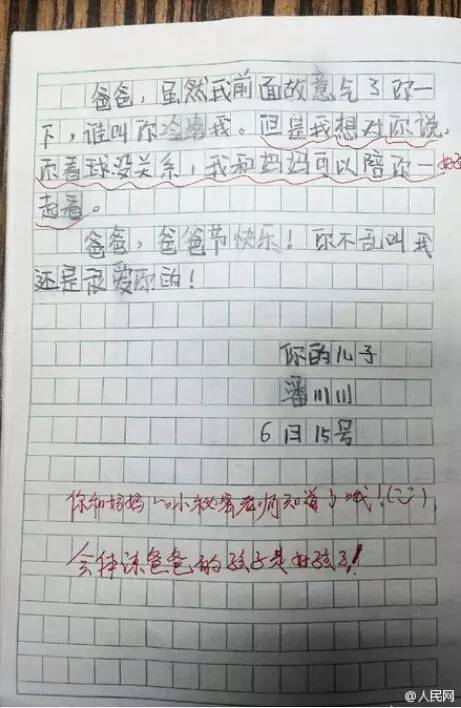 爸爸，虽然我前面故意气了你一
下，谁叫你冷落我。但是我想对你说，
你看球没关系，我和妈妈可以陪你一
起看。
爸爸，爸爸节快乐！你不乱叫我
还是很爱你的！
你的儿子
潘川川
6月15号
你和妈妈的小秘密老师知道了哦！
会体谅爸爸的孩子是好孩子！
@人民网